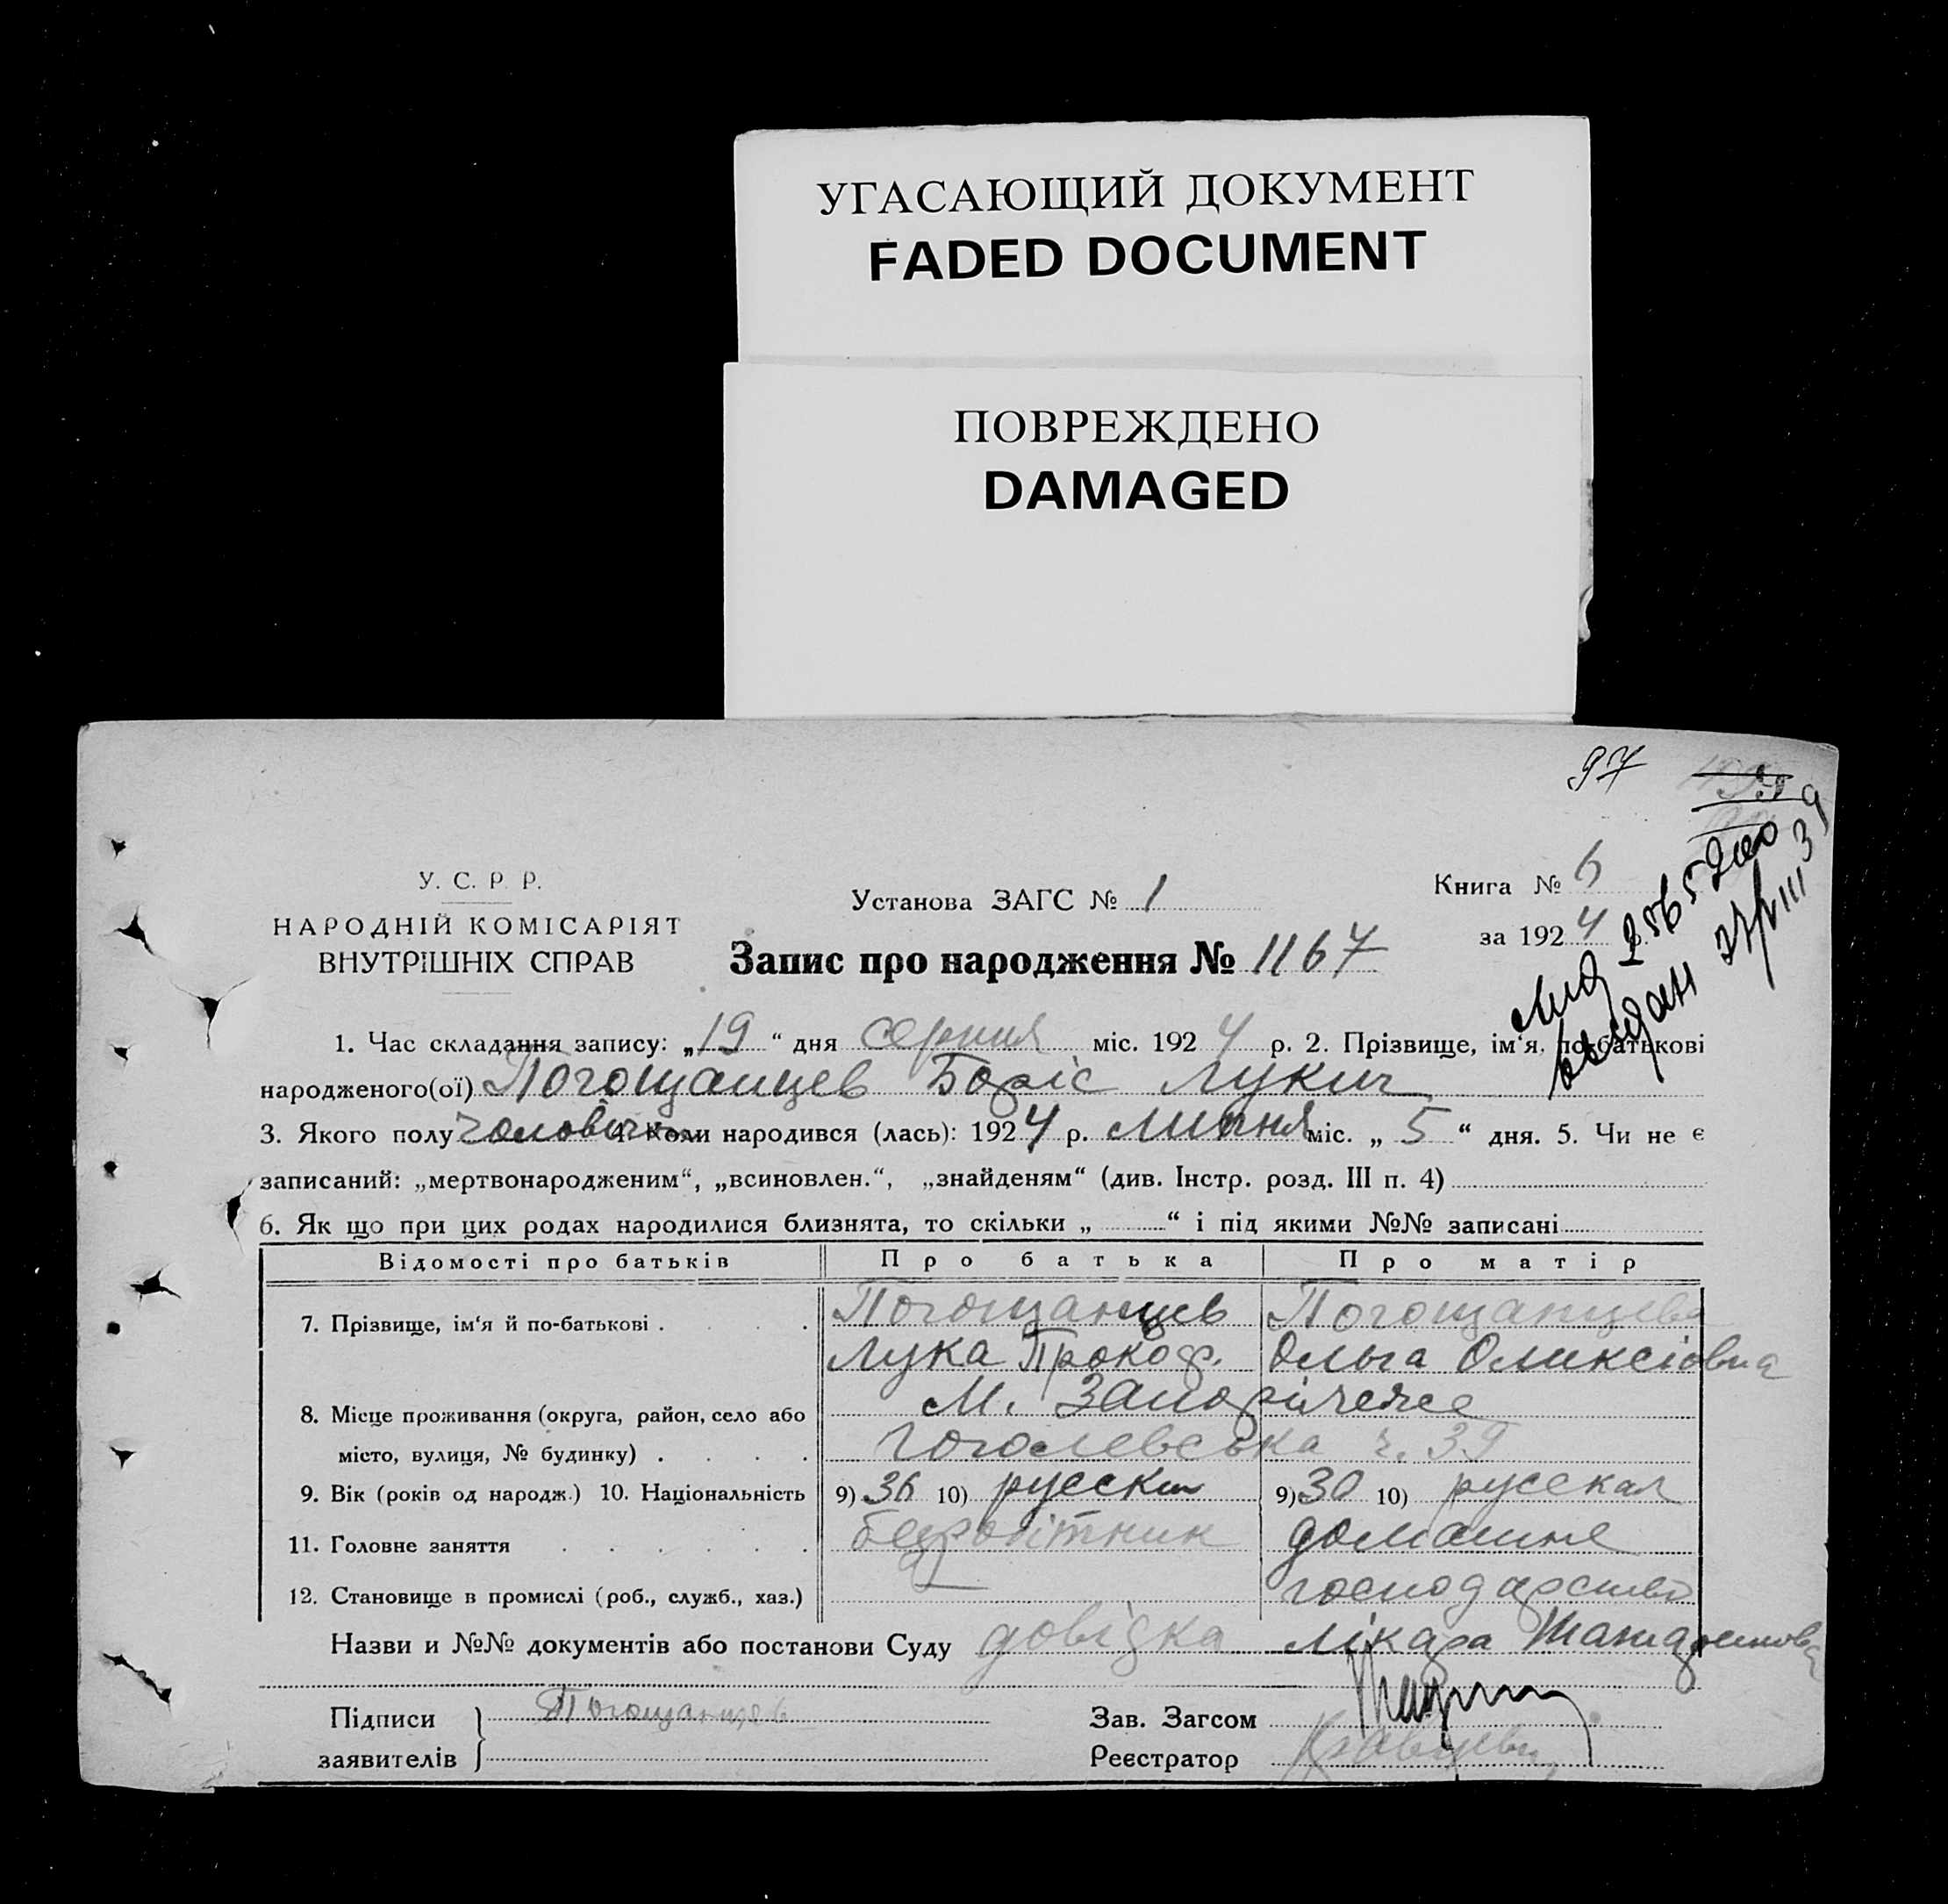 УГАСАЮЩИЙ ДОКУМЕНТ
FADED DOCUMENT
ПОВРЕЖДЕНО
DAMAGED
97
У. С. Р. Р.
НАРОДНІЙ КОМІСАРІЯТ
ВНУТРІШНІХ СПРАВ
Установа ЗАГС № 1
Запис про народження № 1167
Книга № 6
за 1924 р.
1. Час складання запису: „19“ дня серпня міс. 1924 р. 2. Прізвище, ім‘я, по-батькові
народженого(ої) Погощанцев Боріс Лукич
3. Якого полу чоловіч 4. Коли народився (лась): 1924 р. липня міс. „5“ дня. 5. Чи не є
записаний: „мертвонародженим“, „всиновлен.“, „знайденям“ (див. Інстр. розд. III п. 4)
6. Як що при цих родах народилися близнята, то скільки „ “ і під якими №№ записані
Відомості про батьків Про батька Про матір
7. Прізвище, ім‘я й по-батькові Погощанцев Погощанцева
Лука Прокоф. Ольга Олексіовна
8. Місце проживання (округа, район, село або М. Запоріжже
місто, вулиця, № будинку) Гоголевська ч. 39
9. Вік (років од народж.) 10. Національність 9) 36 10) русски 9) 30 10) русская
11. Головне заняття безробітник домашнє
12. Становище в промислі (роб., служб., хаз.) — господарство
Назви и №№ документів або постанови Суду довідка лікара
Підписи Погощанцев Зав. Загсом
заявителів Реєстратор